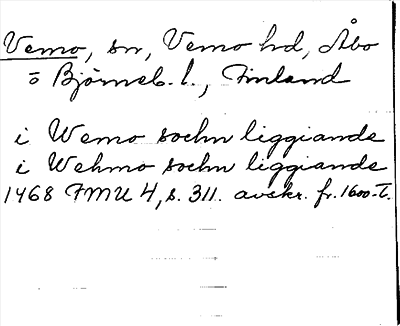 Vemo, sn, Vemo hd, Åbo
o Björneb. l., Finland
i Wemo sochn liggiande
i Wehmo sochn liggiande
1468 FMU 4, s. 311. avskr. fr. 1600-t.